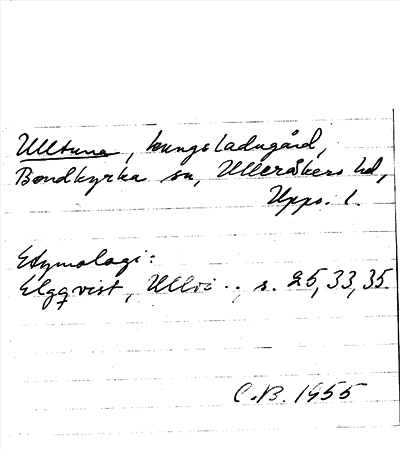 Ulltuna, kungsladugård,
Bondkyrka sn, Ulleråkers hd,
Upps. l.
Etymologi:
Elgqvist, Ullvi .., s. 25, 33, 35
C.B. 1955